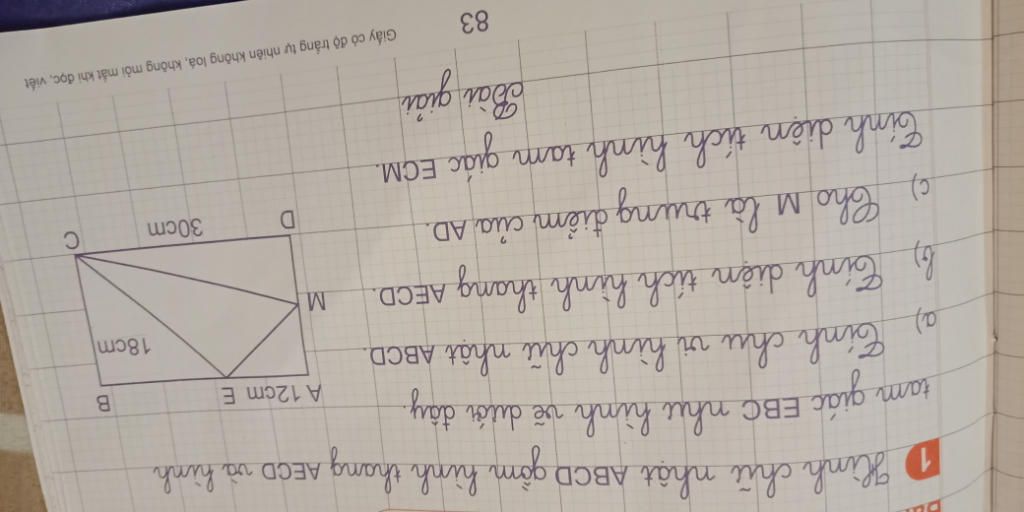 1 Hình chữ nhật ABCD gồm hình thang AECD và hình
tam giác EBC như hình vẽ dưới đây.
a) Tính chu vi hình chữ nhật ABCD.
b) Tính diện tích hình thang AECD.
c) Cho M là trung điểm của AD.
Tính diện tích hình tam giác ECM.
A 12cm E B
18cm
M
D 30cm C
Bài giải
83
Giấy có độ trắng tự nhiên không loá, không mỏi mắt khi đọc, viết